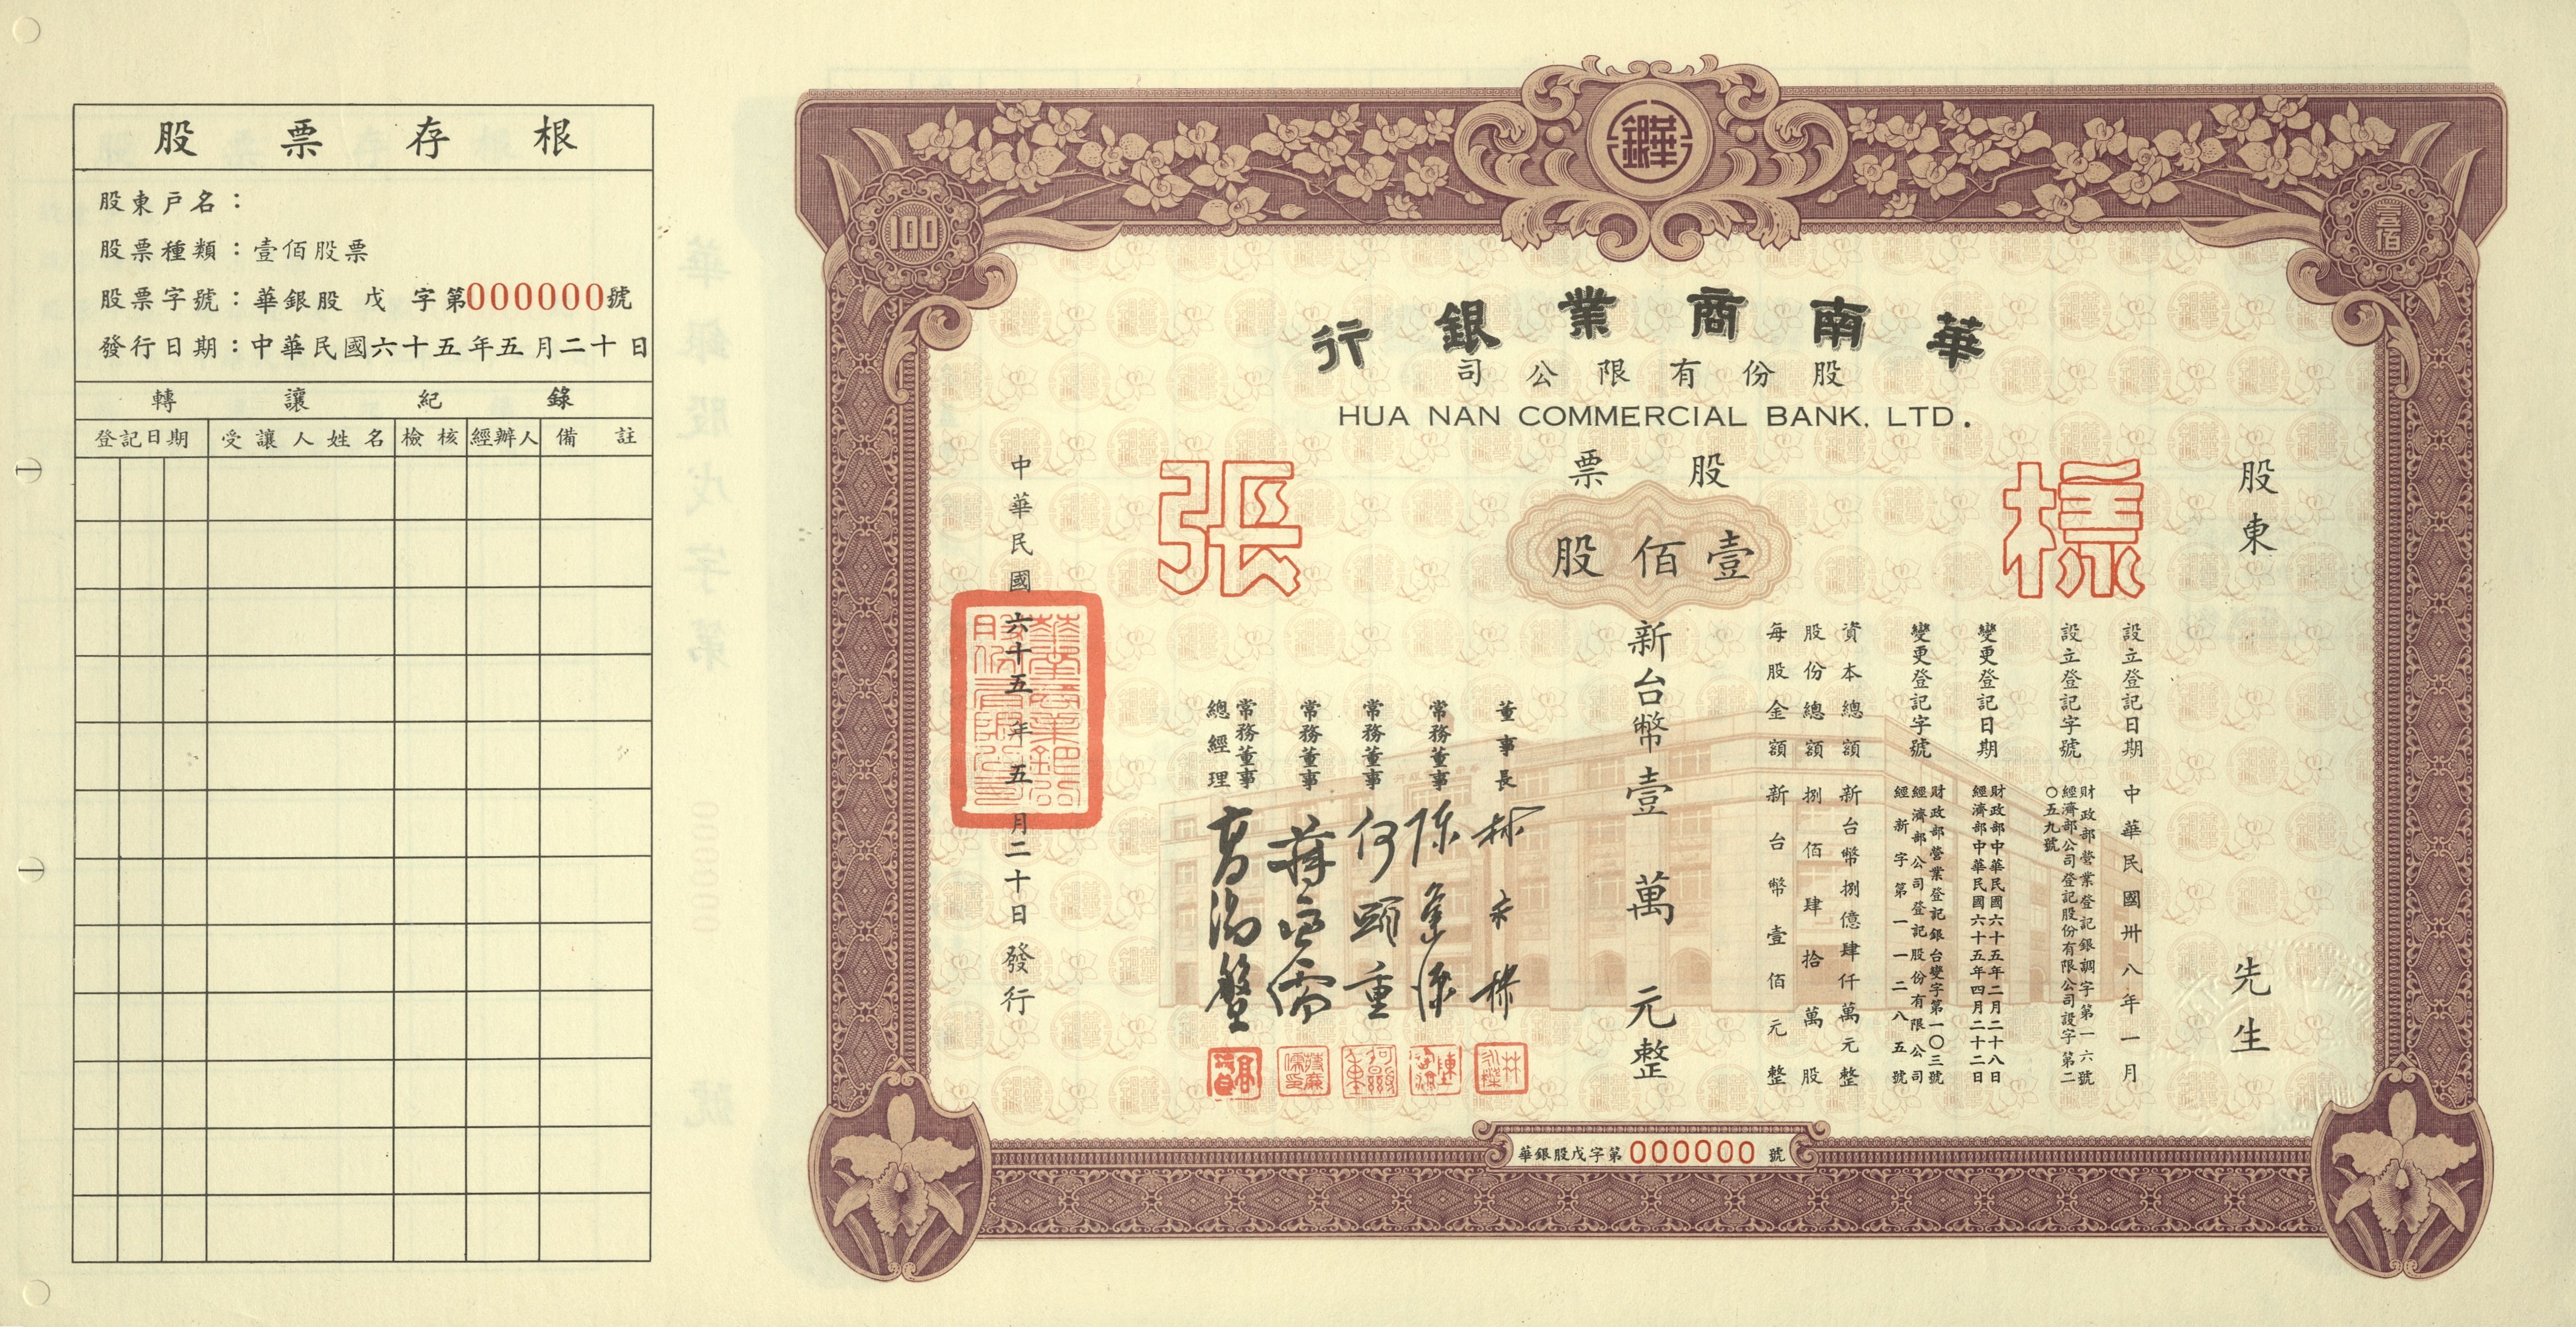 股票存根
股東戶名：
股票種類：壹佰股票
股票字號：華銀股 戊 字第000000號
發行日期：中華民國六十五年五月二十日
轉讓紀錄
登記日期 受讓人姓名 檢核 經辦人 備註
100
壹佰
華銀
華南商業銀行
股份有限公司
HUA NAN COMMERCIAL BANK, LTD.
股票
樣張
壹佰股
股東 先生
設立登記日期 中華民國卅八年一月
設立登記字號 財政部營業登記銀調字第一六號
經濟部公司登記股份有限公司設字第二
〇五九號
變更登記日期 財政部中華民國六十五年二月二十八日
經濟部中華民國六十五年四月二十二日
變更登記字號 財政部營業登記銀台變字第一〇三號
經濟部公司登記股份有限公司
經新字第一一二八五號
資本總額 新台幣捌億肆仟萬元整
股份總額 捌佰肆拾萬股
每股金額 新台幣壹佰元整
新台幣壹萬元整
董事長 林永樑
常務董事 陳逢源
常務董事 何顯重
常務董事 蔣廉儒
常務董事
總經理 高湯盤
中華民國六十五年五月二十日發行
華銀股戊字第000000號